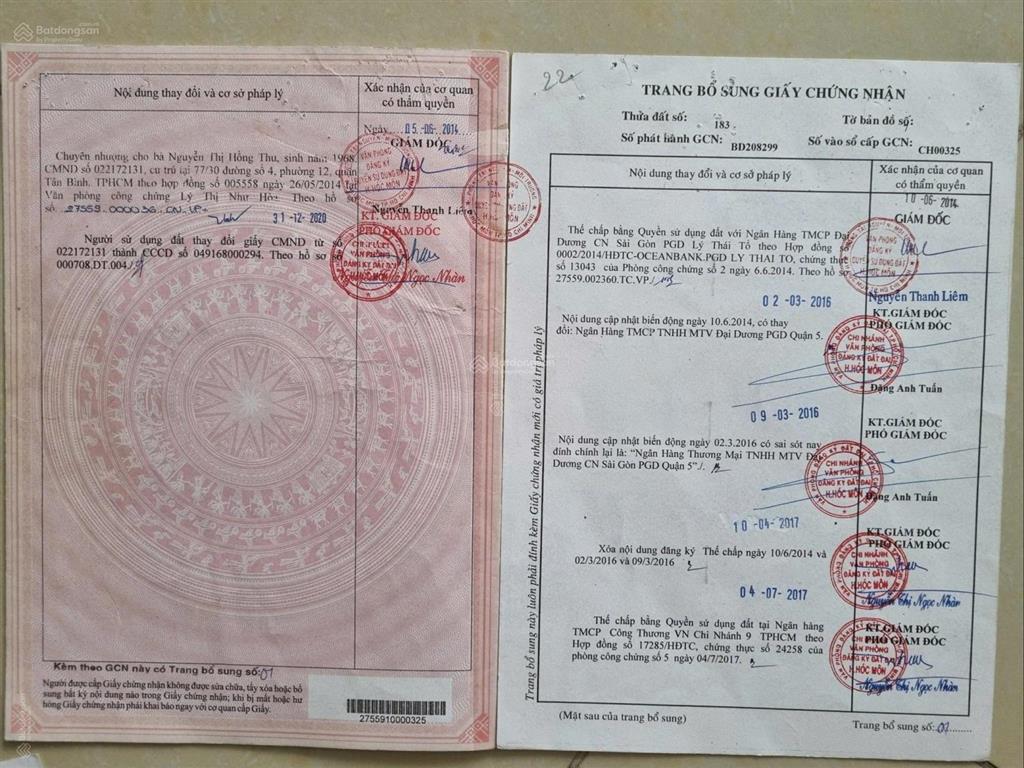 Batdongsan
by PropertyGuru
Nội dung thay đổi và cơ sở pháp lý
Xác nhận của cơ quan
có thẩm quyền
Ngày 05-06-2014
GIÁM ĐỐC
Chuyển nhượng cho bà Nguyễn Thị Hồng Thu, sinh năm 1968,
CMND số 022172131, cư trú tại 77/30 đường số 4, phường 12, quận
Tân Bình, TPHCM theo hợp đồng số 005558 ngày 26/05/2014 tại
Văn phòng công chứng Lý Thị Như Hòa. Theo hồ sơ
số 27559.000036.CN.VP
Nguyễn Thanh Liêm
31-12-2020
KT. GIÁM ĐỐC
PHÓ GIÁM ĐỐC
Người sử dụng đất thay đổi giấy CMND từ số
022172131 thành CCCD số 049168000294. Theo hồ sơ số
000708.DT.004
Nguyễn Thị Ngọc Nhàn
Kèm theo GCN này có Trang bổ sung số: 01
Người được cấp Giấy chứng nhận không được sửa chữa, tẩy xóa hoặc bổ
sung bất kỳ nội dung nào trong Giấy chứng nhận; khi bị mất hoặc hư
hỏng Giấy chứng nhận phải khai báo ngay với cơ quan cấp Giấy.
2755910000325
22
TRANG BỔ SUNG GIẤY CHỨNG NHẬN
Thửa đất số: 183
Tờ bản đồ số: 9
Số phát hành GCN: BD208299
Số vào sổ cấp GCN: CH00325
Nội dung thay đổi và cơ sở pháp lý
Xác nhận của cơ quan
có thẩm quyền
10-06-2014
GIÁM ĐỐC
Thế chấp bằng Quyền sử dụng đất với Ngân Hàng TMCP Đại
Dương CN Sài Gòn PGD Lý Thái Tổ theo Hợp đồng số
0002/2014/HĐTC-OCEANBANK.PGD LY THAI TO, chứng thực
số 13043 của Phòng công chứng số 2 ngày 6.6.2014. Theo hồ sơ
27559.002360.TC.VP
Nguyễn Thanh Liêm
02-03-2016
KT.GIÁM ĐỐC
PHÓ GIÁM ĐỐC
Nội dung cập nhật biến động ngày 10.6.2014, có thay
đổi: Ngân Hàng TMCP TNHH MTV Đại Dương PGD Quận 5.
CHI NHÁNH
VĂN PHÒNG
ĐĂNG KÝ ĐẤT ĐAI
H.HÓC MÔN
Đặng Anh Tuấn
09-03-2016
KT.GIÁM ĐỐC
PHÓ GIÁM ĐỐC
Nội dung cập nhật biến động ngày 02.3.2016 có sai sót nay
đính chính lại là: “Ngân Hàng Thương Mại TNHH MTV Đại
Dương CN Sài Gòn PGD Quận 5”./.
CHI NHÁNH
VĂN PHÒNG
ĐĂNG KÝ ĐẤT ĐAI
H.HÓC MÔN
Đặng Anh Tuấn
10-04-2017
KT.GIÁM ĐỐC
PHÓ GIÁM ĐỐC
Xóa nội dung đăng ký Thế chấp ngày 10/6/2014 và
02/3/2016 và 09/3/2016
CHI NHÁNH
VĂN PHÒNG
ĐĂNG KÝ ĐẤT ĐAI
H.HÓC MÔN
Nguyễn Thị Ngọc Nhàn
04-07-2017
KT.GIÁM ĐỐC
PHÓ GIÁM ĐỐC
Thế chấp bằng Quyền sử dụng đất tại Ngân hàng
TMCP Công Thương VN Chi Nhánh 9 TPHCM theo
Hợp đồng số 17285/HĐTC, chứng thực số 24258 của
phòng công chứng số 5 ngày 04/7/2017.
CHI NHÁNH
VĂN PHÒNG
ĐĂNG KÝ ĐẤT ĐAI
H.HÓC MÔN
Nguyễn Thị Ngọc Nhàn
(Mặt sau của trang bổ sung)
Trang bổ sung số: 01
Trang bổ sung này luôn phải đính kèm Giấy chứng nhận mới có giá trị pháp lý